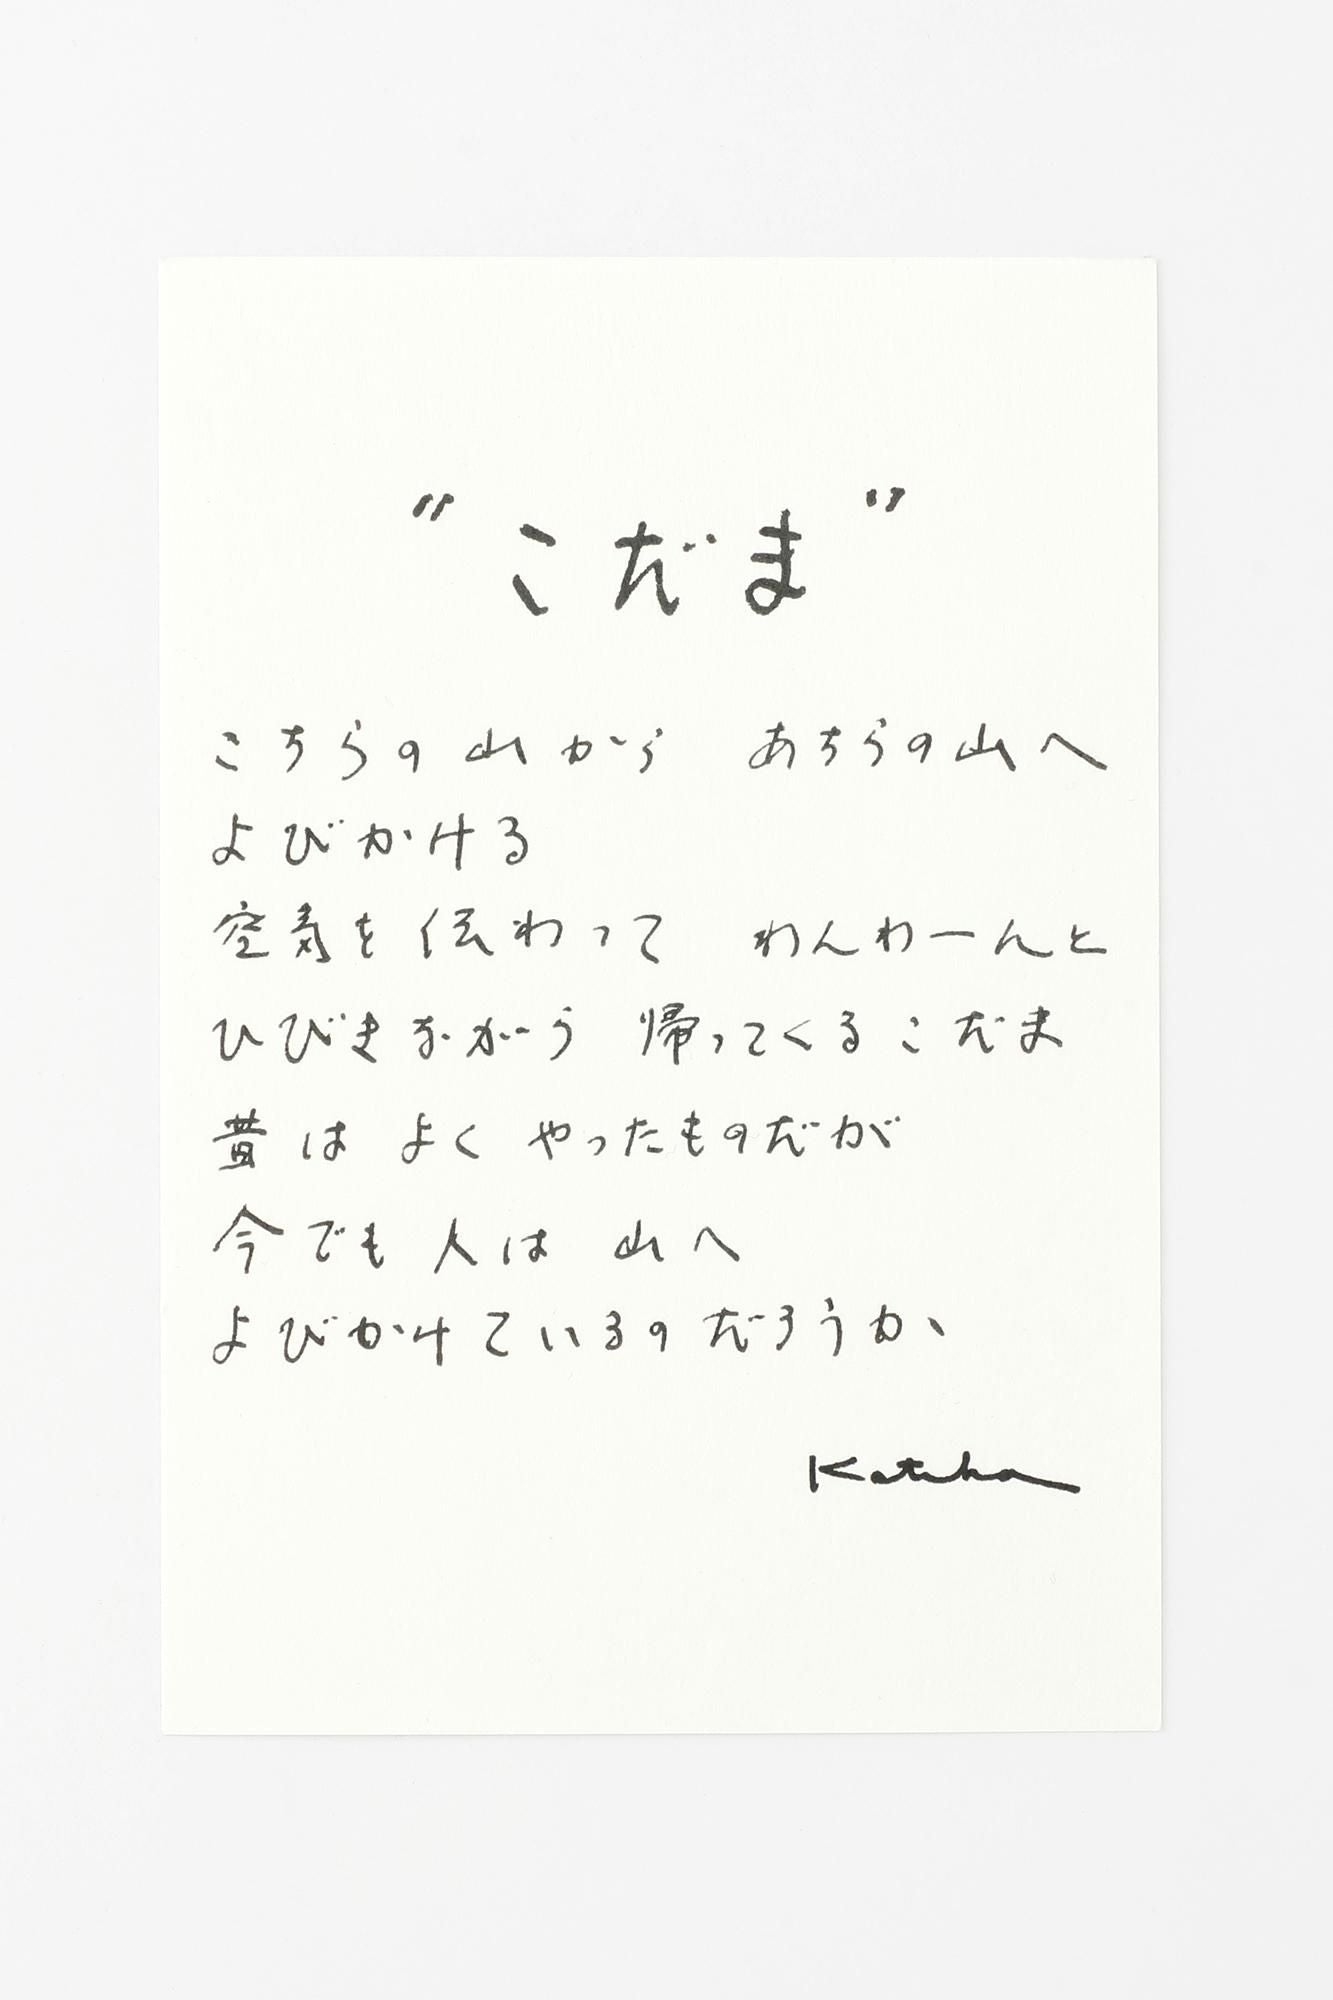 "こだま"
こちらの山から　あちらの山へ
よびかける
空気を伝わって　わんわーんと
ひびきながら　帰ってくるこだま
昔は よく やったものだが
今でも 人は　山へ
よびかけているのだろうか、
Katsuha